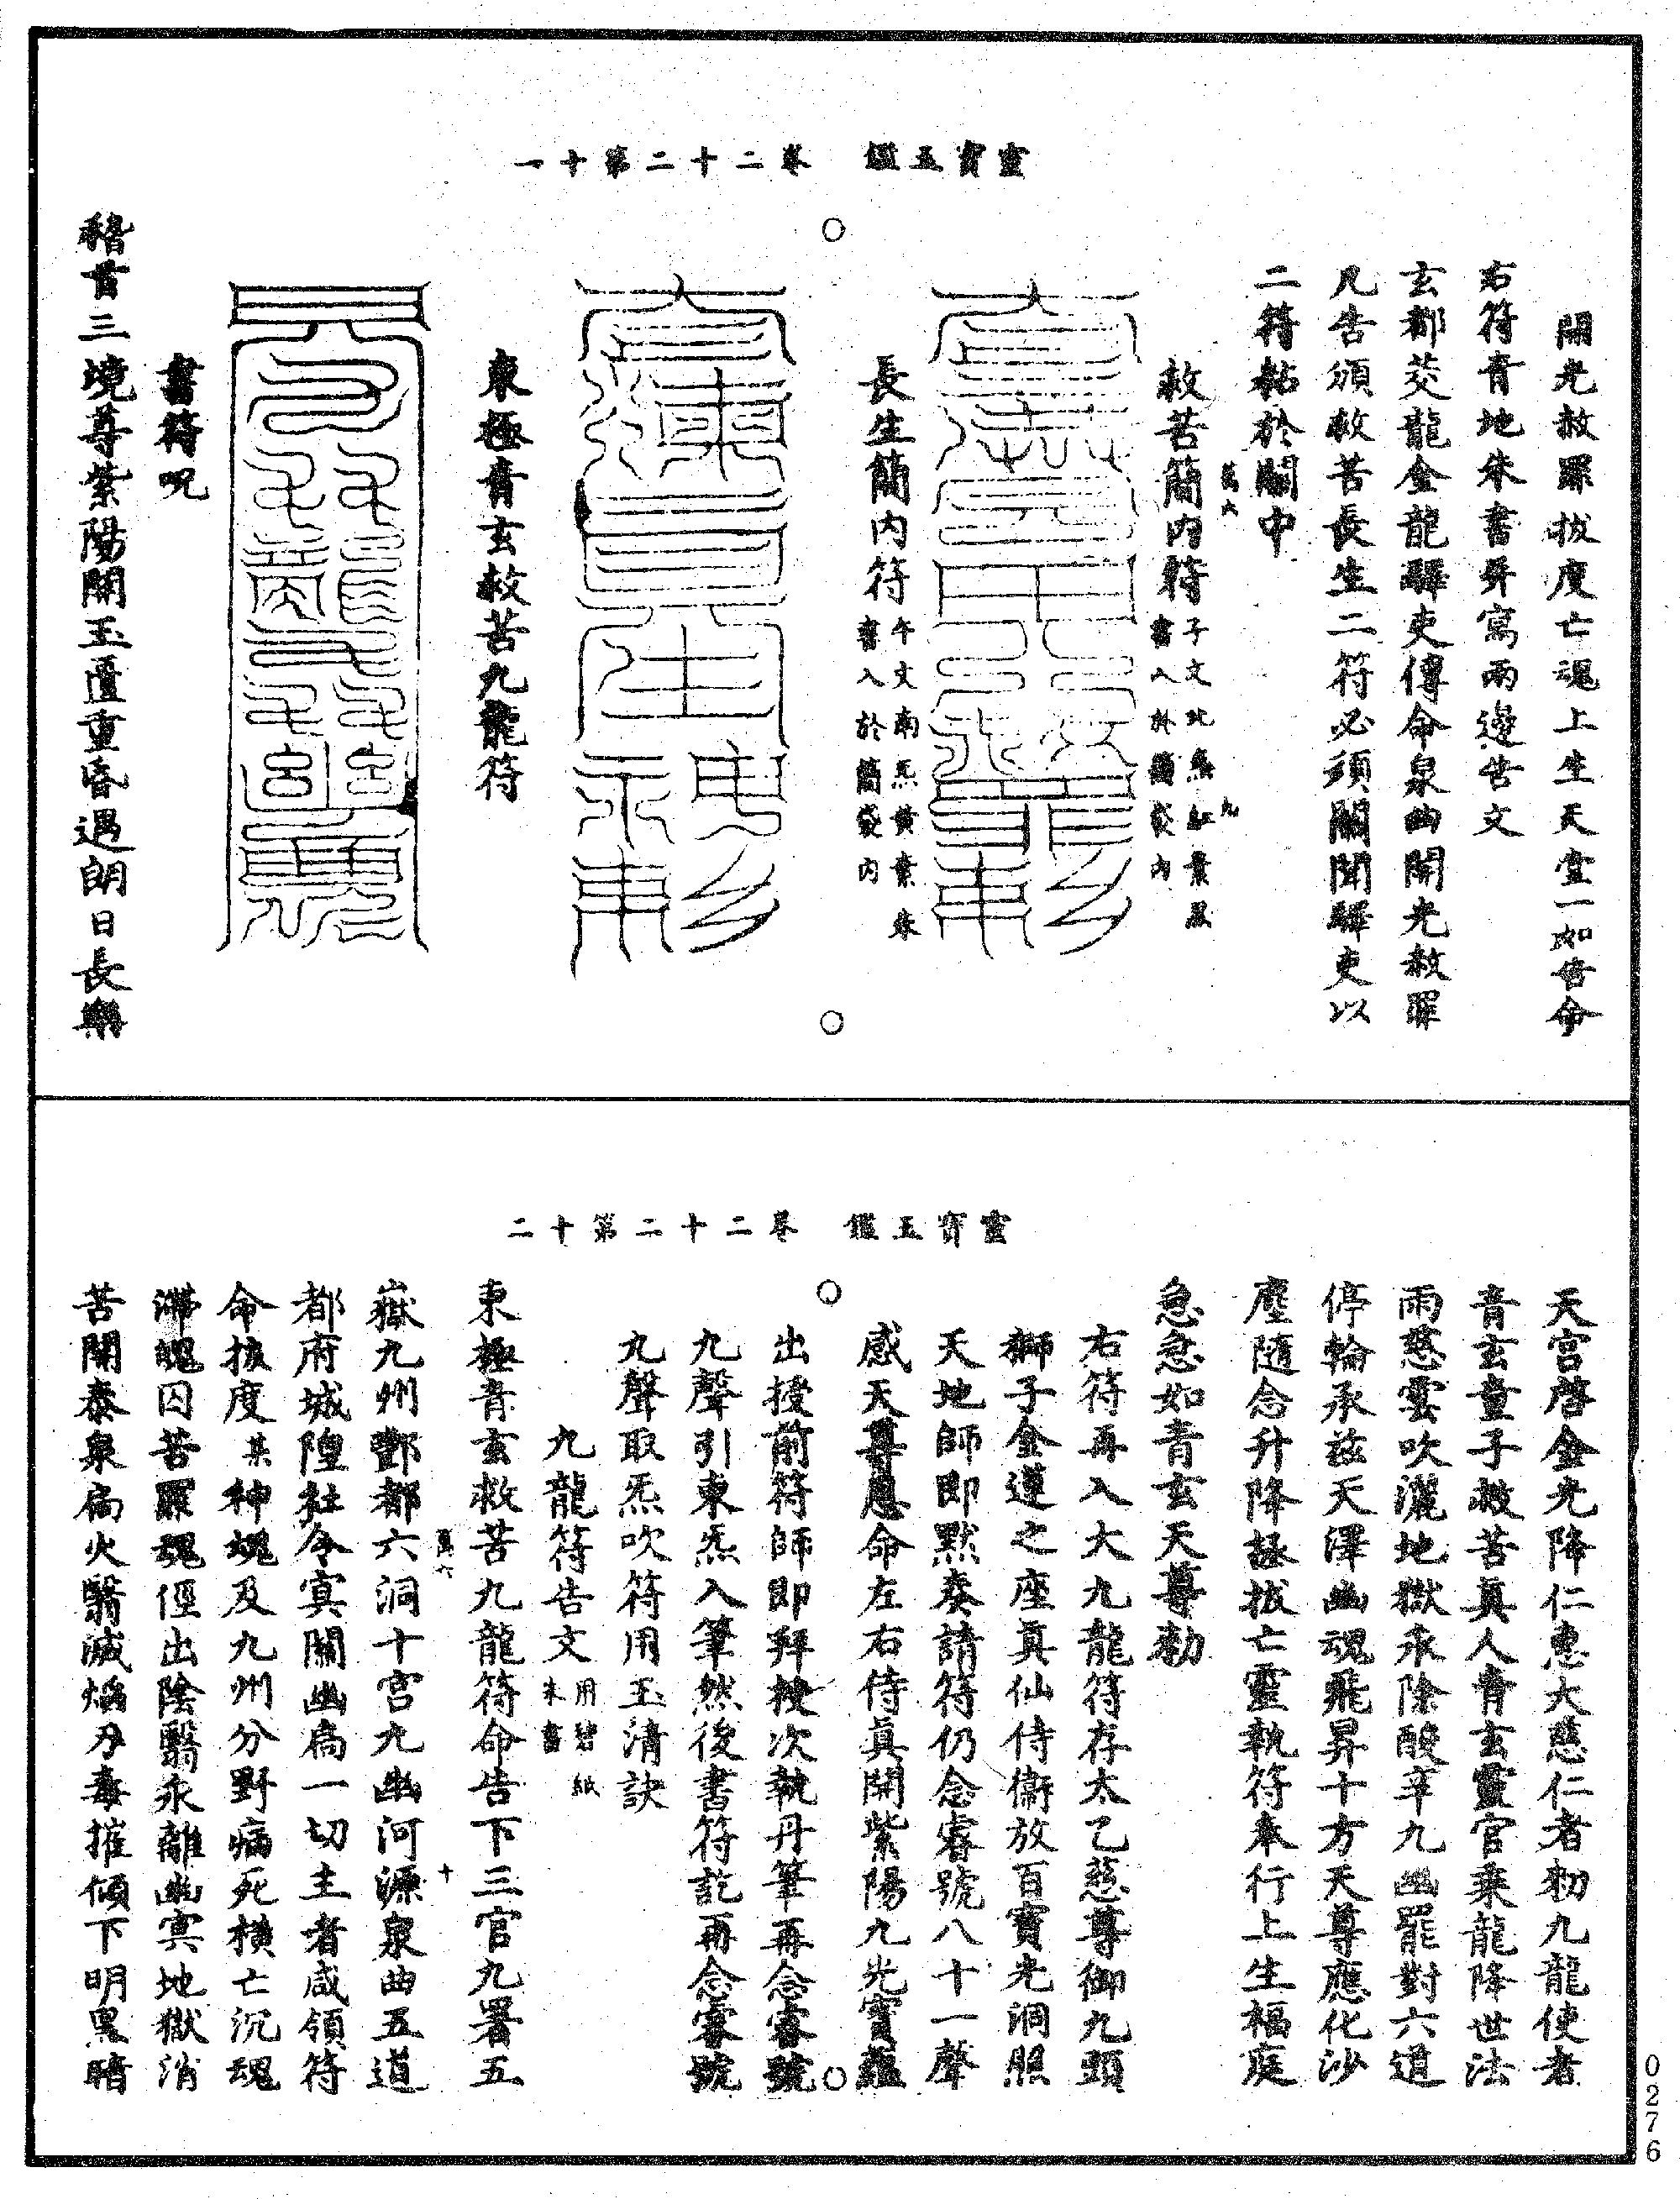 靈寶玉鑑　卷二十二第十一
開光赦罪拔度亡魂上生天堂一如告命
右符青地朱書昇寫兩邊告文
玄都茭龍金龍驛吏傳命泉曲開光赦罪
凡告頒救苦長生二符必須關聞驛吏以
二符粘於關中
救苦簡内符
子文北炁紅葉黑
書入於簡袋内
長生簡内符
午文南炁黄葉朱
書入於簡袋内
東極青玄救苦九龍符
書符呪
稽首三境尊紫陽開玉匱重昏遇朗日長樂
靈寶玉鑑　卷二十二第十二
天宫啓金光降仁惠大慈仁者勑九龍使者
青玄童子救苦眞人青玄靈官乘龍降世法
雨慈雲吹灑地獄永除酸辛九幽罷對六道
停輪承兹天澤幽魂飛昇十方天尊應化沙
塵隨念升降拯拔亡靈執符奉行上生福庭
急急如青玄天尊勑
右符再入大九龍符存太乙慈尊御九頭
獅子金蓮之座眞仙侍衛放百寶光洞照
天地師即默奏請符仍念睿號八十一聲
感天尊慇命左右侍眞開紫陽九光寶蘊
出授前符師即拜授次執丹筆再念睿號
九聲引東炁入筆然後書符訖再念睿號
九聲取炁吹符用玉清訣
九龍符告文
用碧紙
朱書
東極青玄救苦九龍符命告下三官九署五
嶽九州酆都六洞十宫九幽河源泉曲五道
都府城隍社令寞關幽扃一切主者咸領符
命拔度某神魂及九州分野病死横亡沉魂
滯魄囚苦羅魂徑出陰翳永離幽冥地獄消
苦開泰泉扃火翳滅焰刀毒摧傾下明黑暗
0276